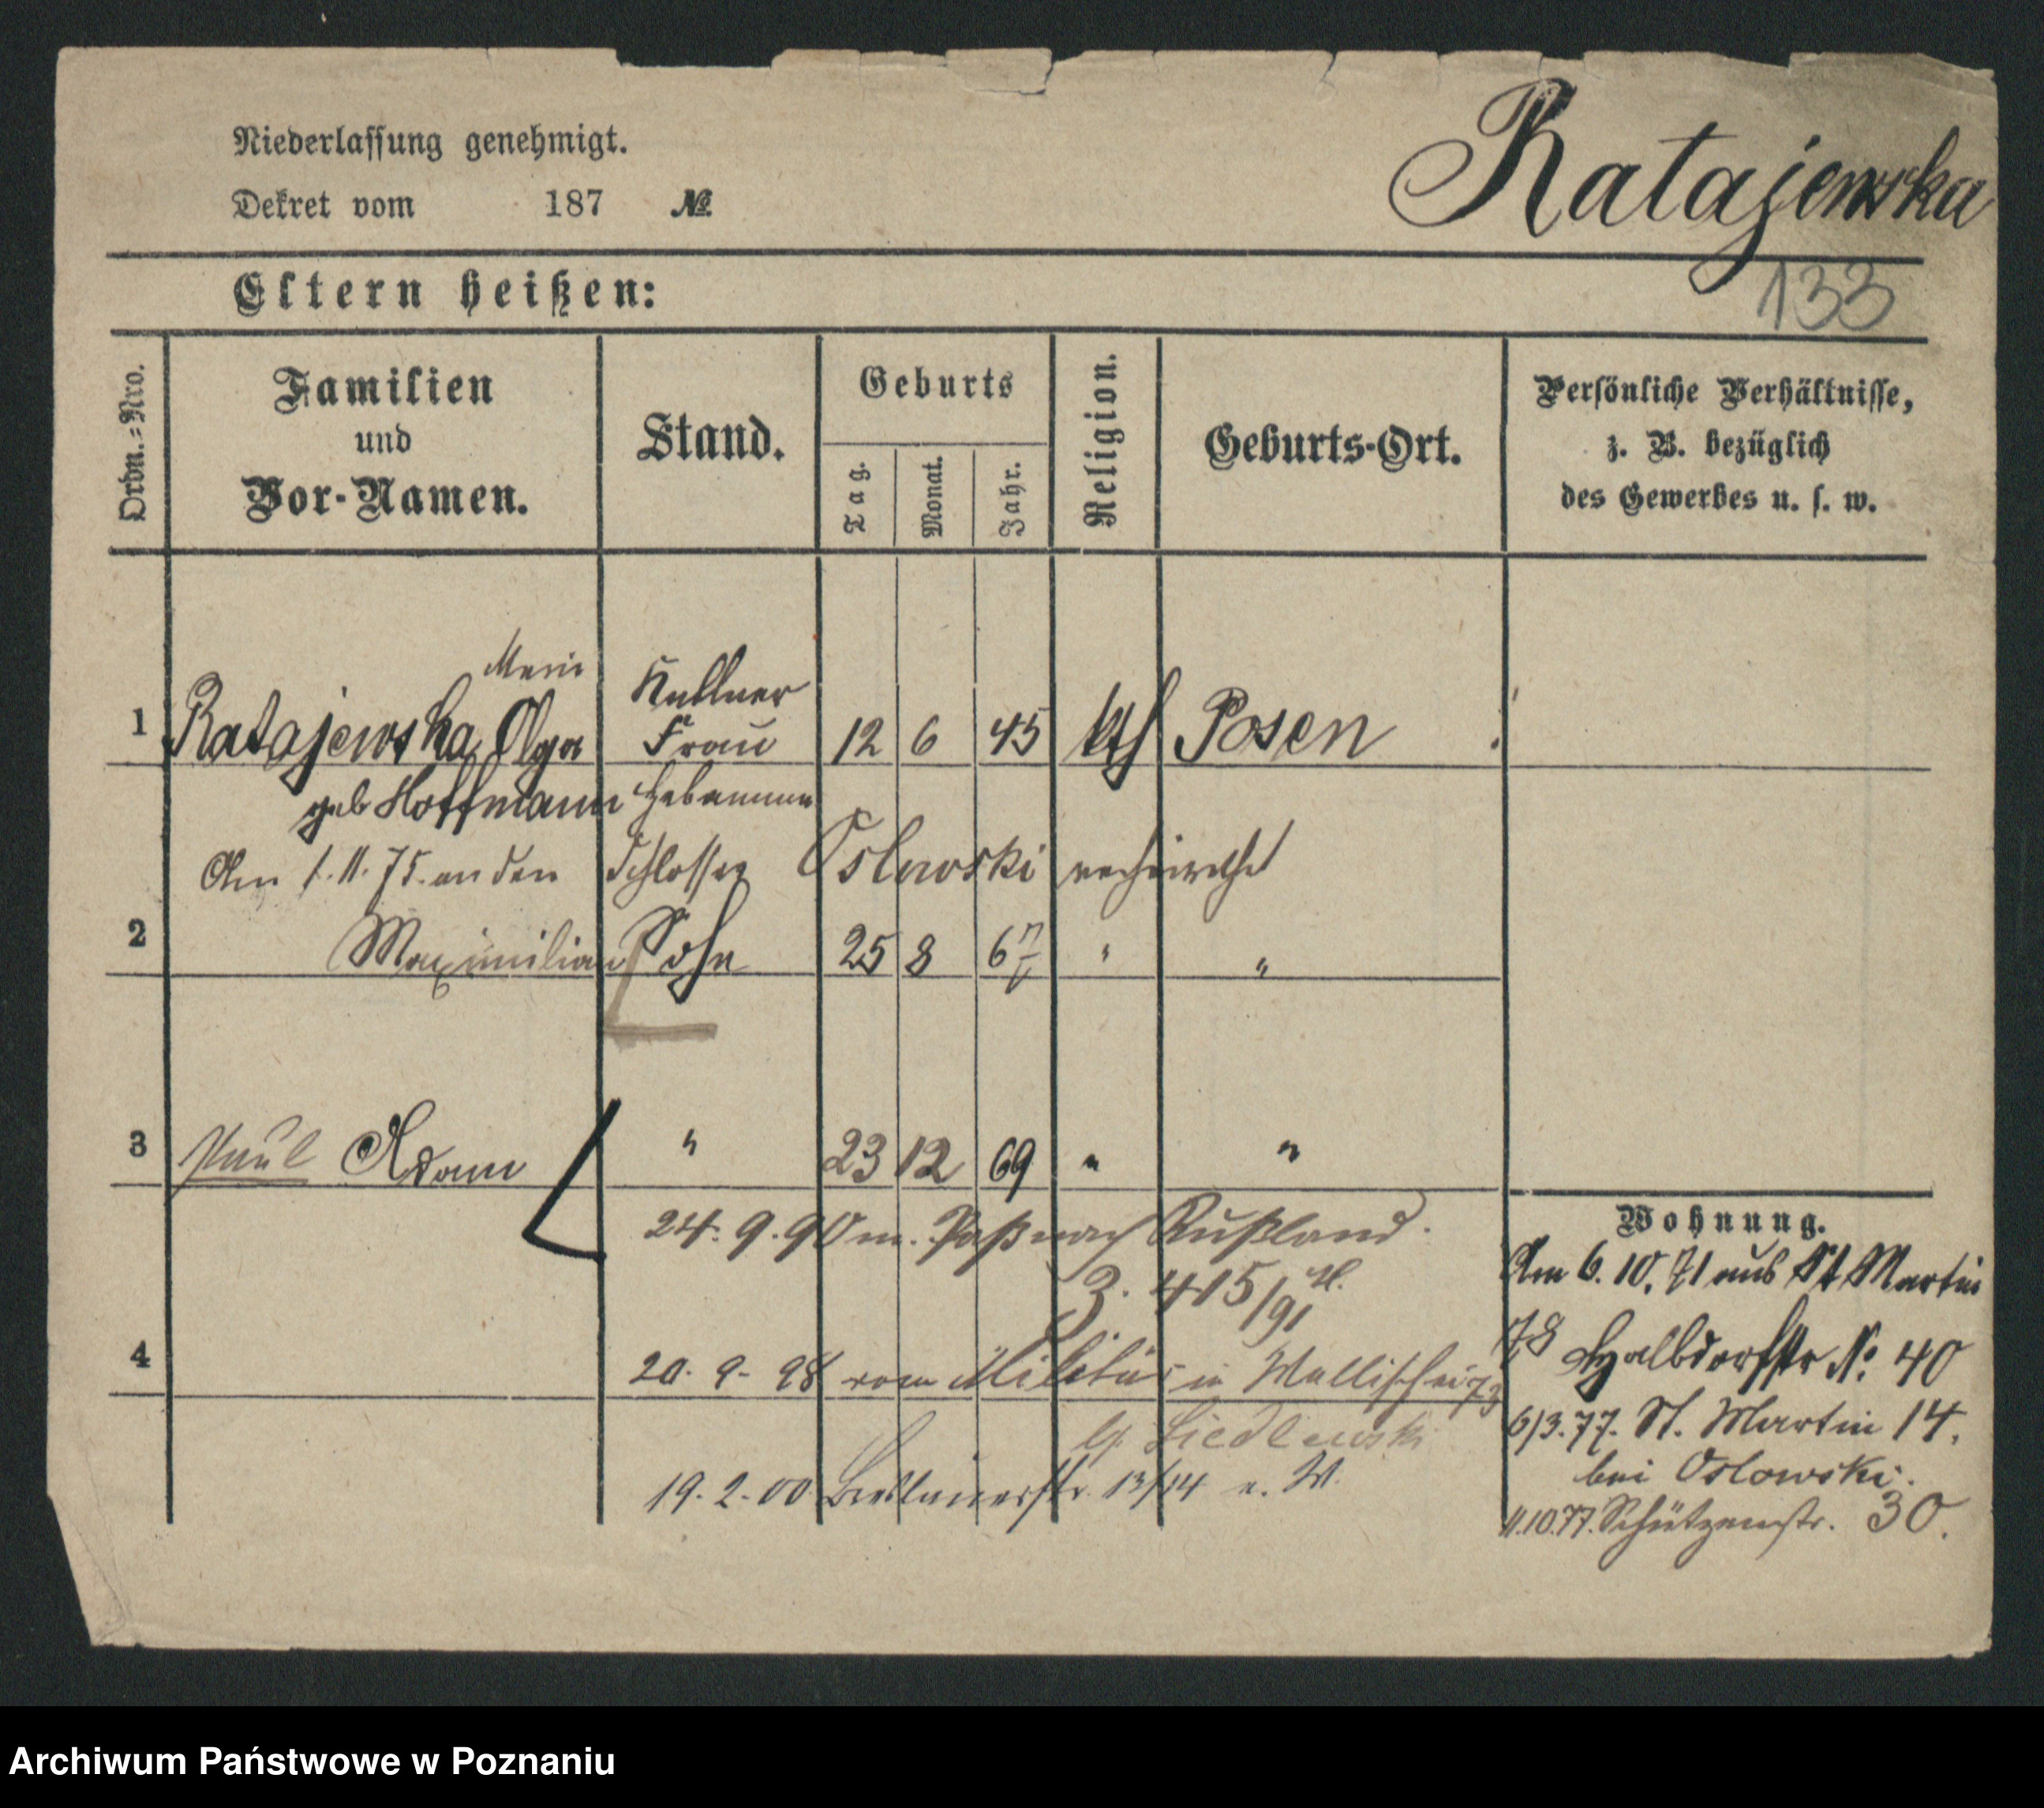 Niederlassung genehmigt.
Dekret vom 187 №
Ratajewska
133
Eltern heißen:
Ordn.-Nro.
Familien und Vor-Namen.
Stand.
Geburts
Tag.
Monat.
Jahr.
Religion.
Geburts-Ort.
Persönliche Verhältnisse, z. B. bezüglich des Gewerbes u. s. w.
Marie
Kellner
1 Ratajewska, Olga Frau 12 6 45 kth Posen
geb Hoffmann Hebamme
Am 1.11.75. an den Schlosser Oslowski verheirathet
2 Maximilian Sohn 25 8 67 " "
3 Paul Adam " 23 12 69 " "
24. 9. 90 m. Paß nach Rußland.
3. 415/91
4
20. 9. 98 vom Militär in Wallischei 73
b. Siedlewski
19. 2. 00 Breslauerstr. 13/14 e. W.
Wohnung.
Am 6. 10. 71 aus St Martin
78 Halbdorfstr No. 40
6/3. 77. St. Martin 14.
bei Oslowski.
11.10.77. Schützenstr. 30.
Archiwum Państwowe w Poznaniu